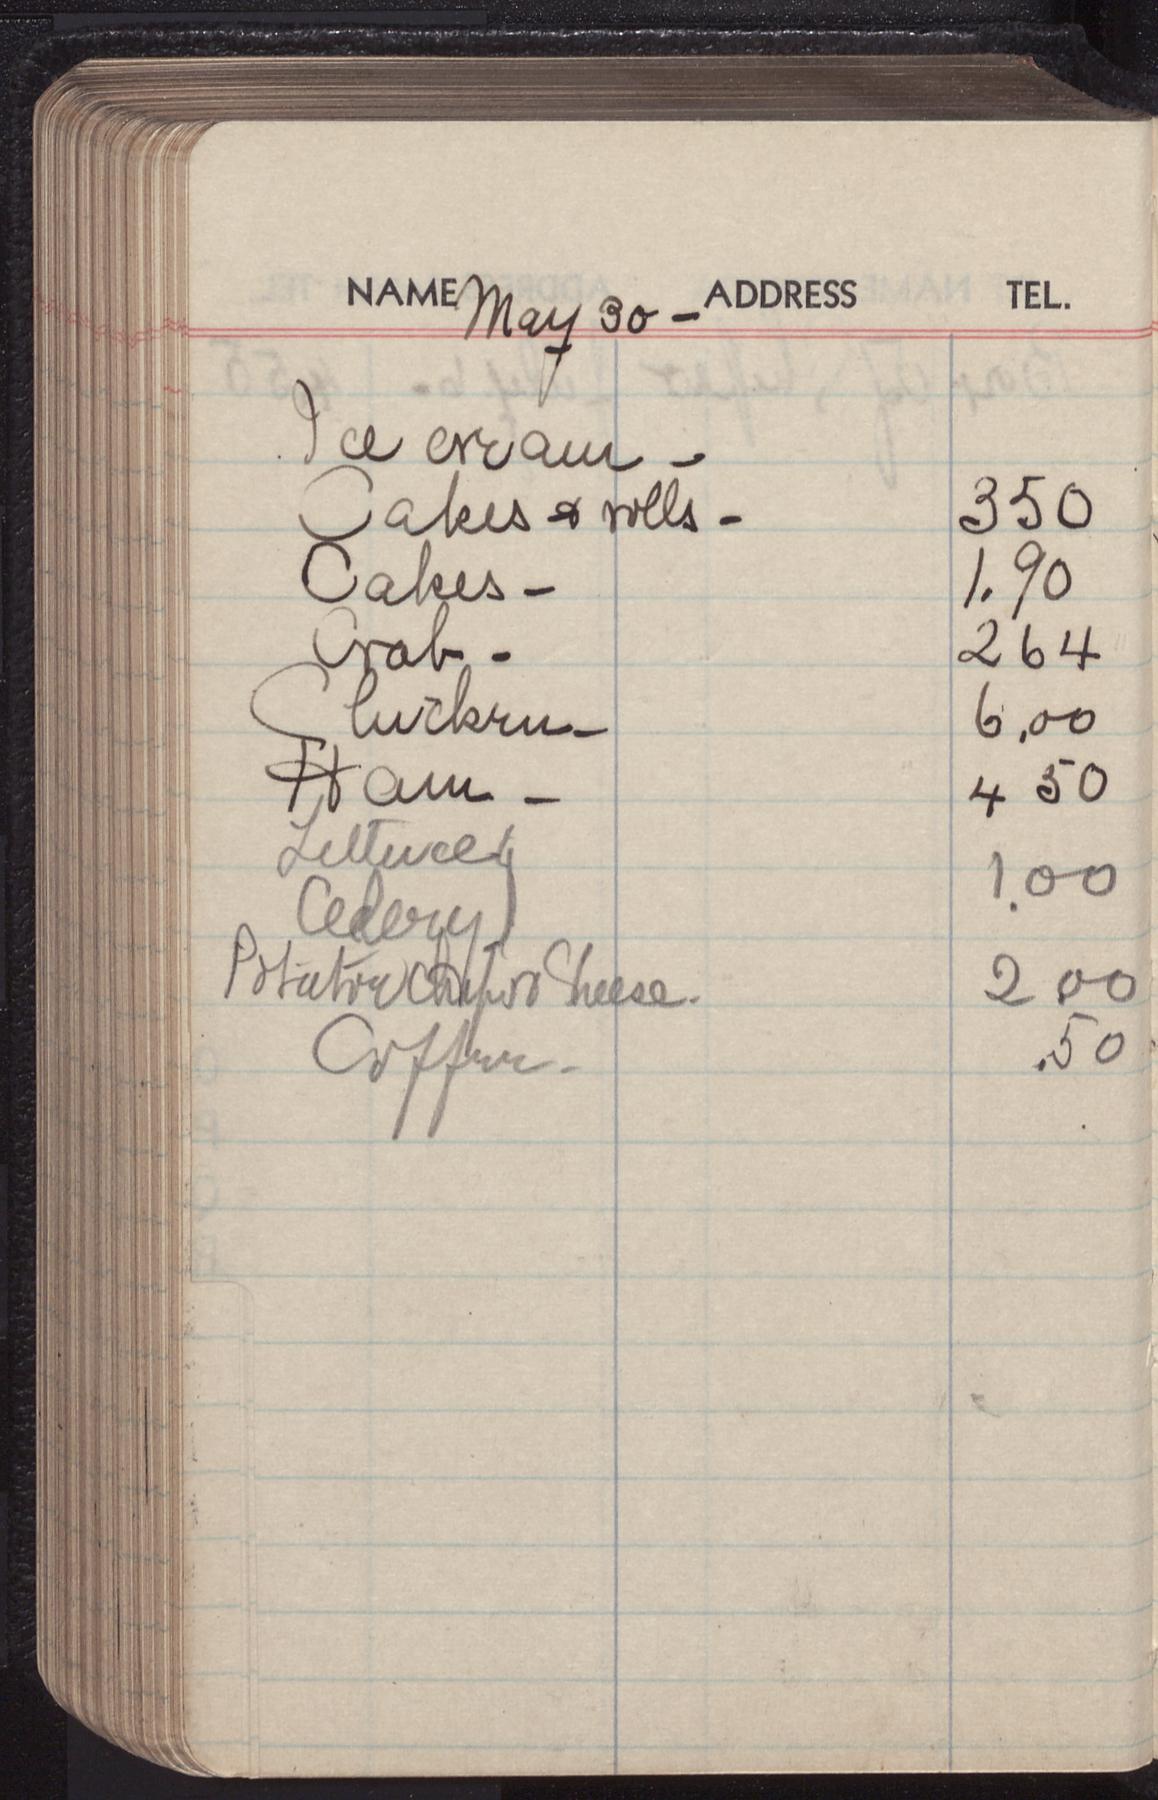 NAME May 30 - ADDRESS TEL.
Ice cream -
Cakes & rolls - 350
Cakes - 1.90
Crab - 264
Chicken - 6.00
Ham - 4 50
Lettuce &
Celery) 1.00
Potatoe Chips & Cheese. 2 00
Coffee - .50